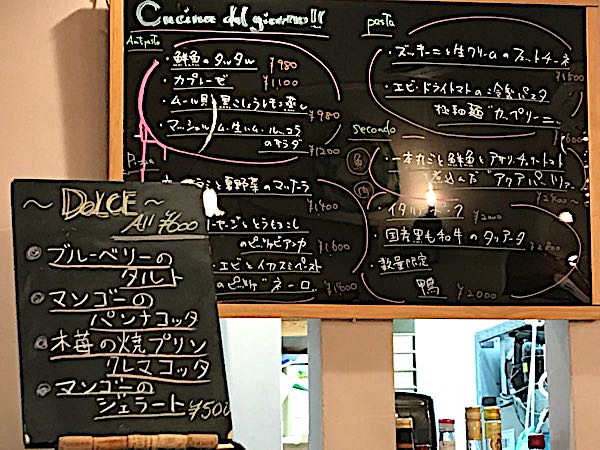 Cucina del giorno!!
Antipasto
・鮮魚のタルタル ¥980
・カプレーゼ ¥1,100
・ムール貝 黒こしょうレモン蒸し ¥980
・マッシュルーム・生ハム・ルッコラ
のサラダ ¥1200
Pizza
夏野菜のマリナーラ
¥1400
ソーセージととうもろこし
のピッツァビアンカ ¥1600
エビとイカスミペースト
の ピッツァ"ネーロ" ¥1800
pasta
・ズッキーニと生クリームのフェットチーネ
¥1500
・エビ・ドライトマトの冷製パスタ
極細麺"カッペリーニ"
¥1600
secondo
魚
・一本丸ごと鮮魚とアサリ、チェリートマト
煮込んだ"アクアパッツァ"
肉
¥2000
・国産黒毛和牛のタリアータ
¥2800
・数量限定
鴨 ¥2000
～ DOLCE ～
All ¥600
ブルーベリーの
タルト
マンゴーの
パンナコッタ
木苺の焼プリン
クレマコッタ
マンゴーの
ジェラート ¥500